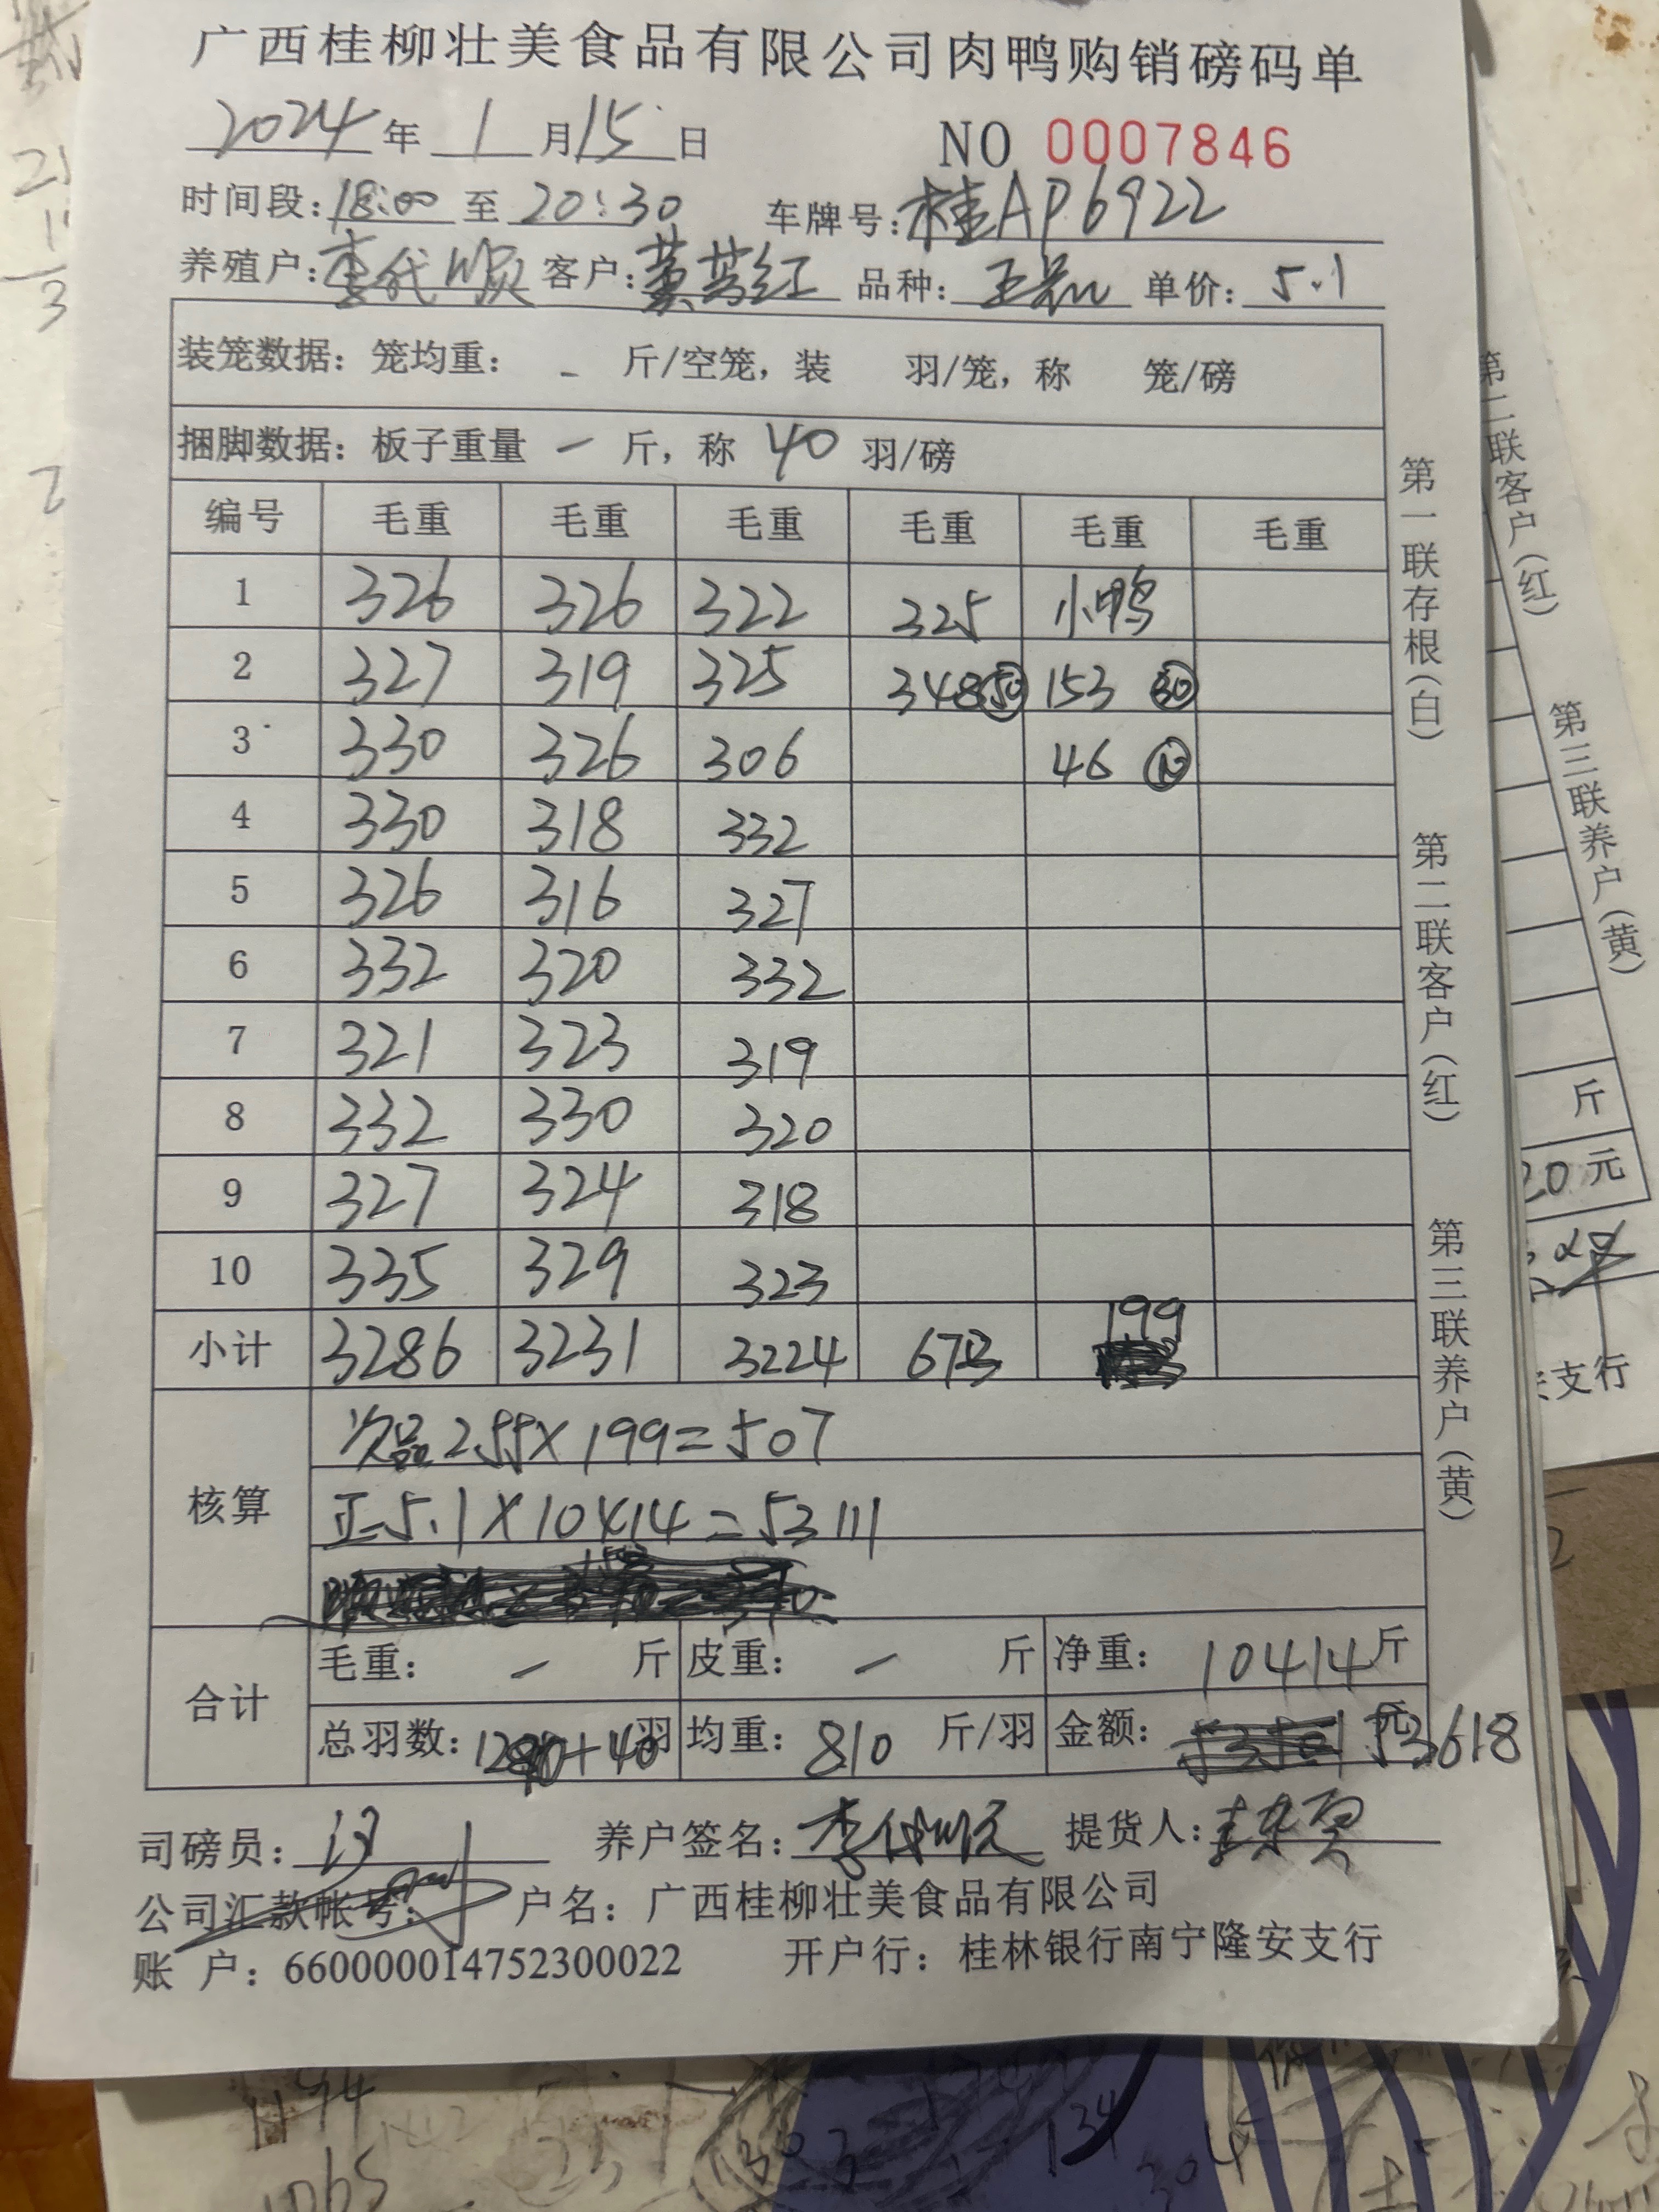 广西桂柳壮美食品有限公司肉鸭购销磅码单
2024年 1月15日 NO 0007846
时间段:18:00 至 20:30 车牌号:桂AP6922
养殖户:李代顺 客户:黄芳红 品种: 单价:5.1
装笼数据:笼均重: - 斤/空笼,装 羽/笼,称 笼/磅
捆脚数据:板子重量 - 斤,称 40 羽/磅
编号 毛重 毛重 毛重 毛重 毛重 毛重
1 326 326 322 325 小鸭
2 327 319 325 348 50 153 30
3 330 326 306 46 10
4 330 318 332
5 326 316 327
6 332 320 332
7 321 323 319
8 332 330 320
9 327 324 318
10 335 329 323
小计 3286 3231 3224 673 199
核算
次品2.55×199=507
正=5.1×10414=53111
合计
毛重: - 斤 皮重: - 斤 净重: 10414斤
总羽数: +40羽 均重: 810 斤/羽 金额: 元53618
司磅员: 养户签名:李代顺 提货人:
公司汇款帐号: 户名:广西桂柳壮美食品有限公司
账 户:660000014752300022 开户行:桂林银行南宁隆安支行
第一联存根(白)
第二联客户(红)
第三联养户(黄)
第二联客户(红)
第三联养户(黄)
斤
20元
支行